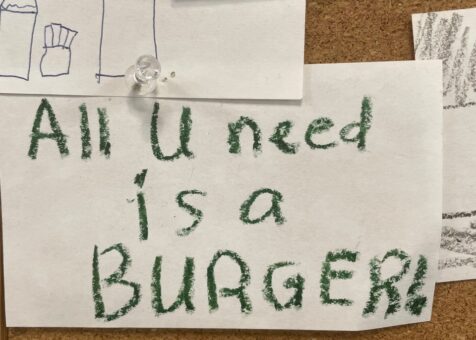 All U need
is a
BURGER!